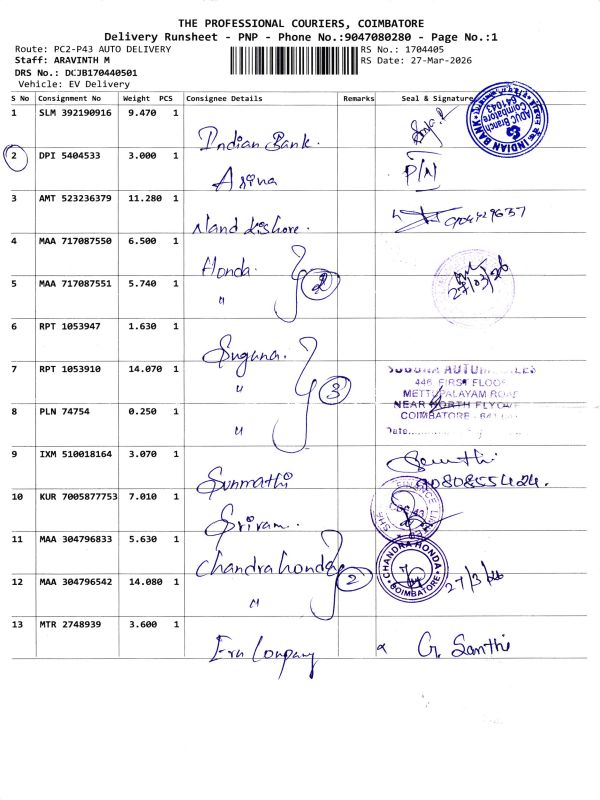 THE PROFESSIONAL COURIERS, COIMBATORE
Delivery Runsheet - PNP - Phone No.:9047080280 - Page No.:1
Route: PC2-P43 AUTO DELIVERY
RS No.: 1704405
Staff: ARAVINTH M
RS Date: 27-Mar-2026
DRS No.: DCJB170440501
Vehicle: EV Delivery
S No Consignment No Weight PCS Consignee Details Remarks Seal & Signature
1 SLM 392190916 9.470 1 Indian Bank.
INDIAN BANK ADUC Branch Coimbatore 641043
2 DPI 5404533 3.000 1 Asina P/N
3 AMT 523236379 11.280 1 Nand Kishore.
4 MAA 717087550 6.500 1 Honda. 2
5 MAA 717087551 5.740 1 " 27/03/26
6 RPT 1053947 1.630 1 Suguna.
7 RPT 1053910 14.070 1 " 3
SUGUNA
446, FIRST FLOOR
METTUPALAYAM ROAD
NEAR NORTH FLYOVER
COIMBATORE - 641
Date
8 PLN 74754 0.250 1 "
9 IXM 510018164 3.070 1 Sunmathi
10 KUR 7005877753 7.010 1 Sriram.
FINANCE
11 MAA 304796833 5.630 1 Chandra honda 2
CHANDRA HONDA COIMBATORE 27/3/26
12 MAA 304796542 14.080 1 "
13 MTR 2748939 3.600 1 Era Company G. Santhi